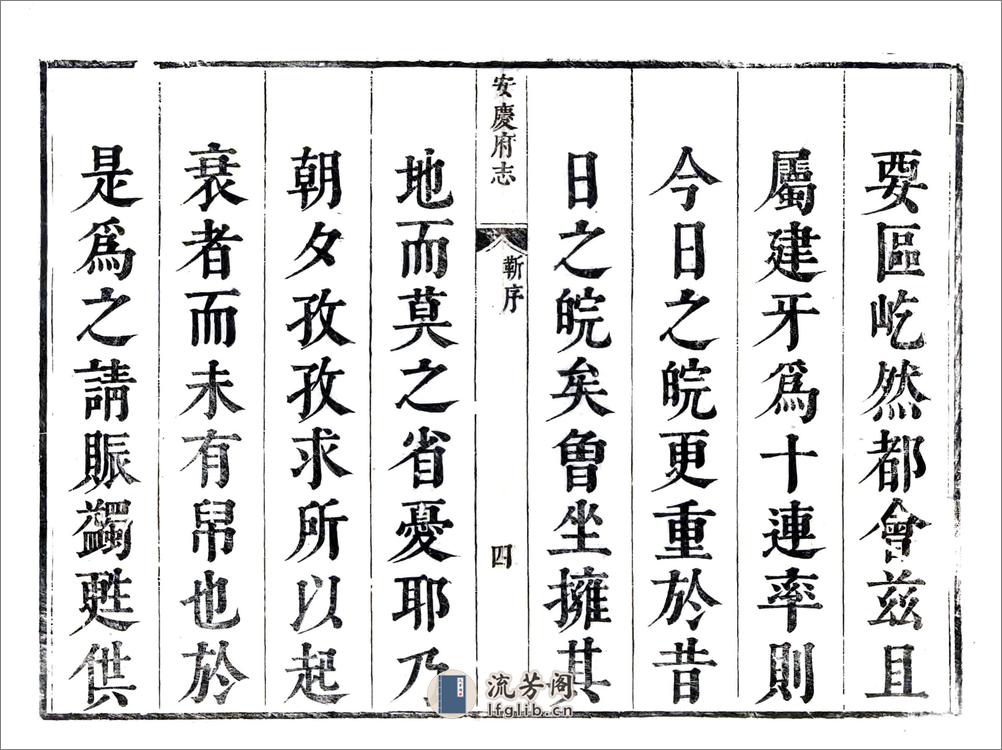 要區屹然都會兹且
屬建牙爲十連率則
今日之皖更重於昔
日之皖矣曾坐擁其
安慶府志
靳序
四
地而莫之省憂耶乃
朝夕孜孜求所以起
衰者而未有帠也於
是爲之請賑蠲甦供
流芳阁
lfglib.cn